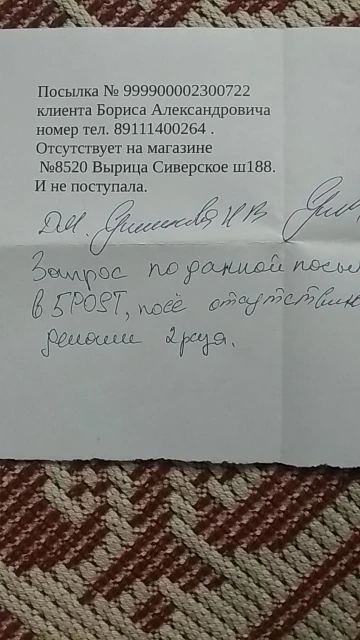 Посылка № 999900002300722
клиента Бориса Александровича
номер тел. 89111400264 .
Отсутствует на магазине
№8520 Вырица Сиверское ш188.
И не поступала.
Д.М.
Запрос по данной посы
в 5POST,
делали 2 раза.